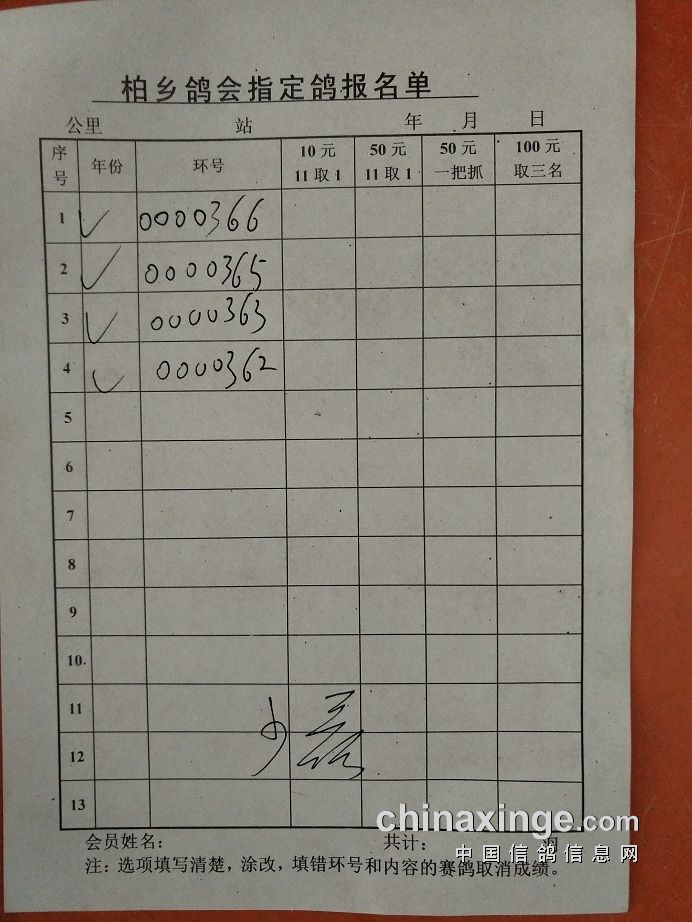 柏乡鸽会指定鸽报名单
公里 站 年 月 日
序号 年份 环号 10元 11取1 50元 11取1 50元 一把抓 100元 取三名
1 ✓ 0000366
2 ✓ 0000365
3 ✓ 0000363
4 ✓ 0000362
5
6
7
8
9
10
11
12
13
会员姓名： 共计： 羽
注：选项填写清楚，涂改，填错环号和内容的赛鸽取消成绩。
chinaxinge.com
中国信鸽信息网